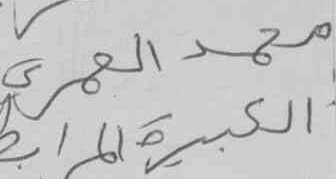 محمد العمري
الكبيرة المرابط